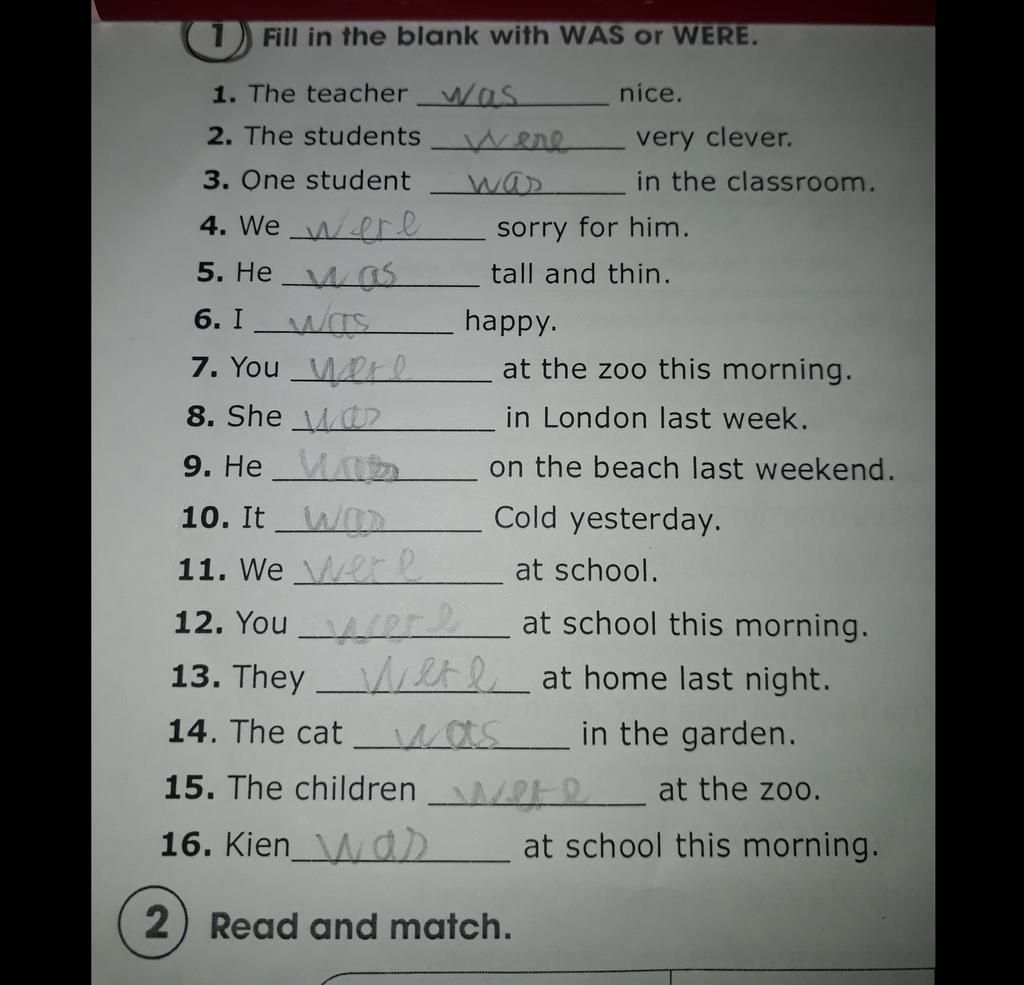 1 Fill in the blank with WAS or WERE.
1. The teacher was nice.
2. The students were very clever.
3. One student was in the classroom.
4. We were sorry for him.
5. He was tall and thin.
6. I was happy.
7. You were at the zoo this morning.
8. She was in London last week.
9. He was on the beach last weekend.
10. It was Cold yesterday.
11. We were at school.
12. You were at school this morning.
13. They were at home last night.
14. The cat was in the garden.
15. The children were at the zoo.
16. Kien was at school this morning.
2 Read and match.